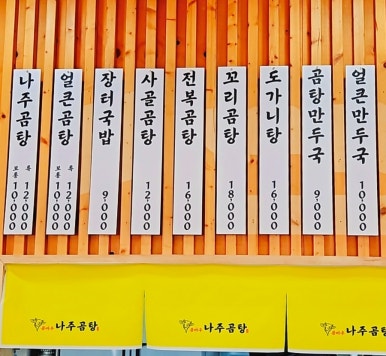 나주곰탕 특 12,000 보통 10,000
얼큰곰탕 특 12,000 보통 10,000
장터국밥 9,000
사골곰탕 12,000
전복곰탕 16,000
꼬리곰탕 18,000
도가니탕 16,000
곰탕만두국 9,000
얼큰만두국 10,000
나주곰탕
나주곰탕
나주곰탕